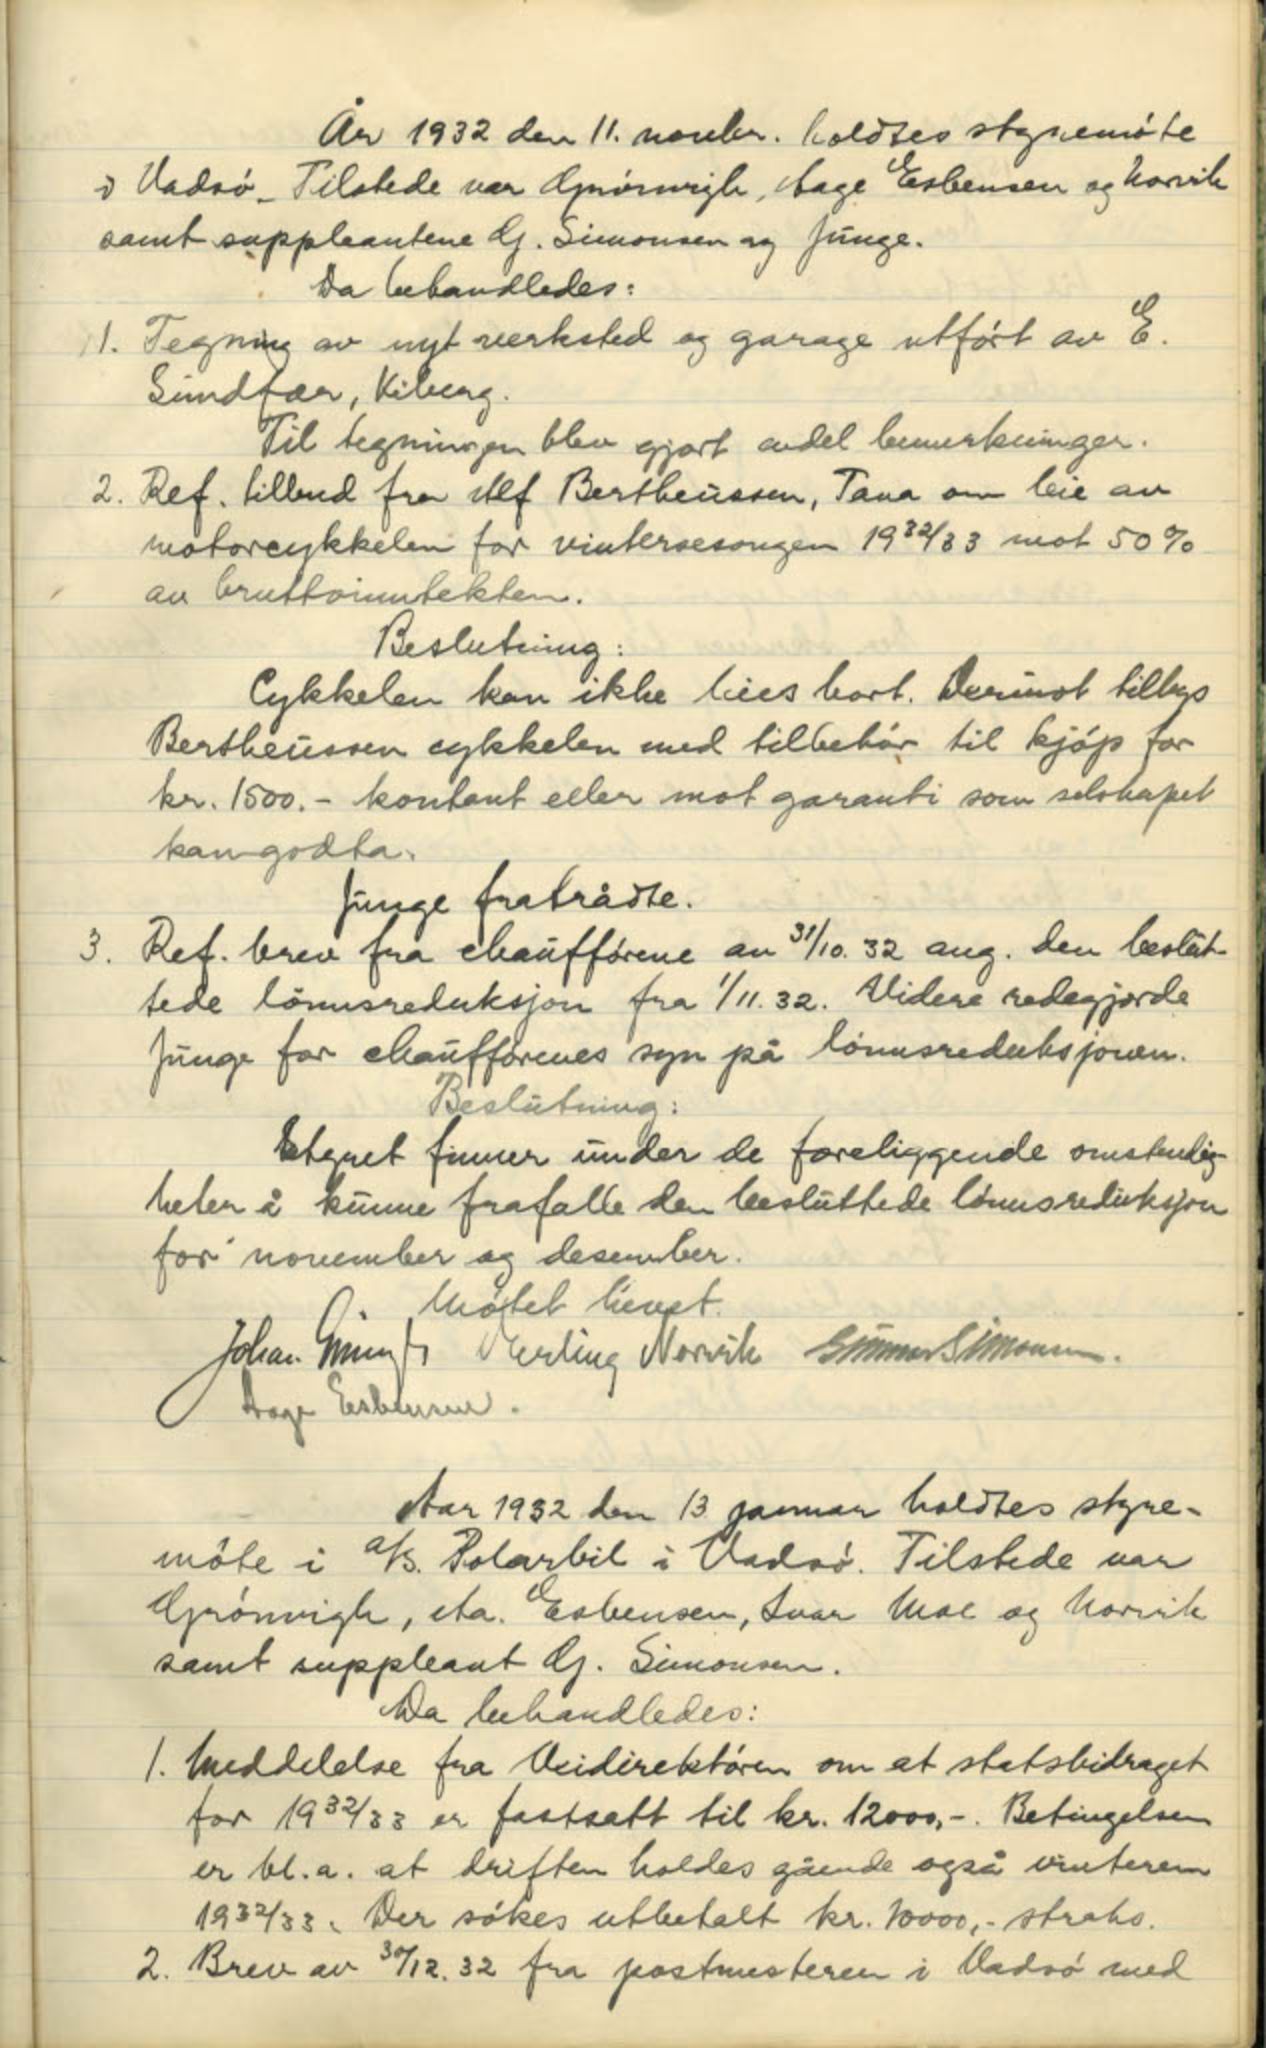 År 1932 den 11. novbr. holdtes styremöte
i Vadsö. Tilstede var Grönvigh, Aage Esbensen og Norvik
samt suppleantene G. Simonsen og Junge.
Da behandledes:
1. Tegning av nyt verksted og garage utfört av E.
Sundfær, Kiberg.
Til tegningen blev gjort endel bemerkninger.
2. Ref. tilbud fra Alf Bertheussen, Tana om leie av
motorcykkelen for vintersesongen 1932/33 mot 50%
av bruttoinntekten.
Beslutning:
Cykkelen kan ikke leies bort. Derimot tilbys
Bertheussen cykkelen med tilbehör til kjöp for
kr. 1500.- kontant eller mot garanti som selskapet
kan godta.
Junge fratrådte.
3. Ref. brev fra chauffförene av 31/10. 32 ang. den beslut-
tede lönnsreduksjon fra 1/11. 32. Videre redegjorde
Junge for chaufförenes syn på lönnsreduksjonen.
Beslutning:
Styret finner under de foreliggende omstendig-
heter å kunne frafalle den besluttede lönnsreduksjon
for november og desember.
Mötet hevet.
Johan Grönvigh Erling Norvik Gunnar Simonsen.
Aage Esbensen.
Aar 1932 den 13 januar holdtes styre-
möte i a/s. Polarbil i Vadsö. Tilstede var
Grönvigh, Aa. Esbensen, Ivar Moe og Norvik
samt suppleant G. Simonsen.
Da behandledes:
1. Meddelelse fra Veidirektören om at statsbidraget
for 1932/33 er fastsatt til kr. 12000,-. Betingelsen
er bl.a. at driften holdes gående også vinteren
1932/33. Der sökes utbetalt kr. 10000,- straks.
2. Brev av 30/12. 32 fra postmesteren i Vadsö med